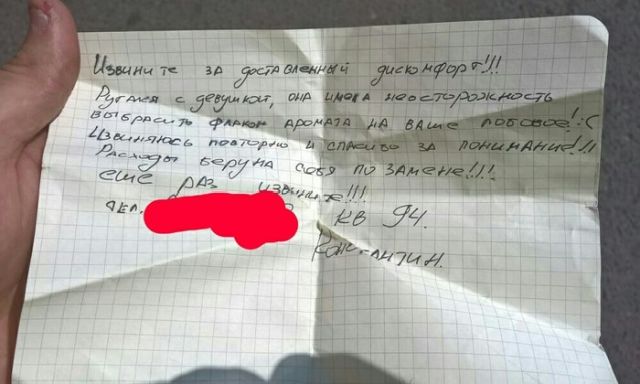 Извините за доставленный дискомфорт!!!
Ругался с девушкой, она имела неосторожность
выбрасить флакон аромата на ваше лобовое! :(
Извиняюсь повторно и спасибо за понимание!!!
Расходы беру на себя по замене!!!!
еще раз извините!!!
тел. кв 94.
Константин.